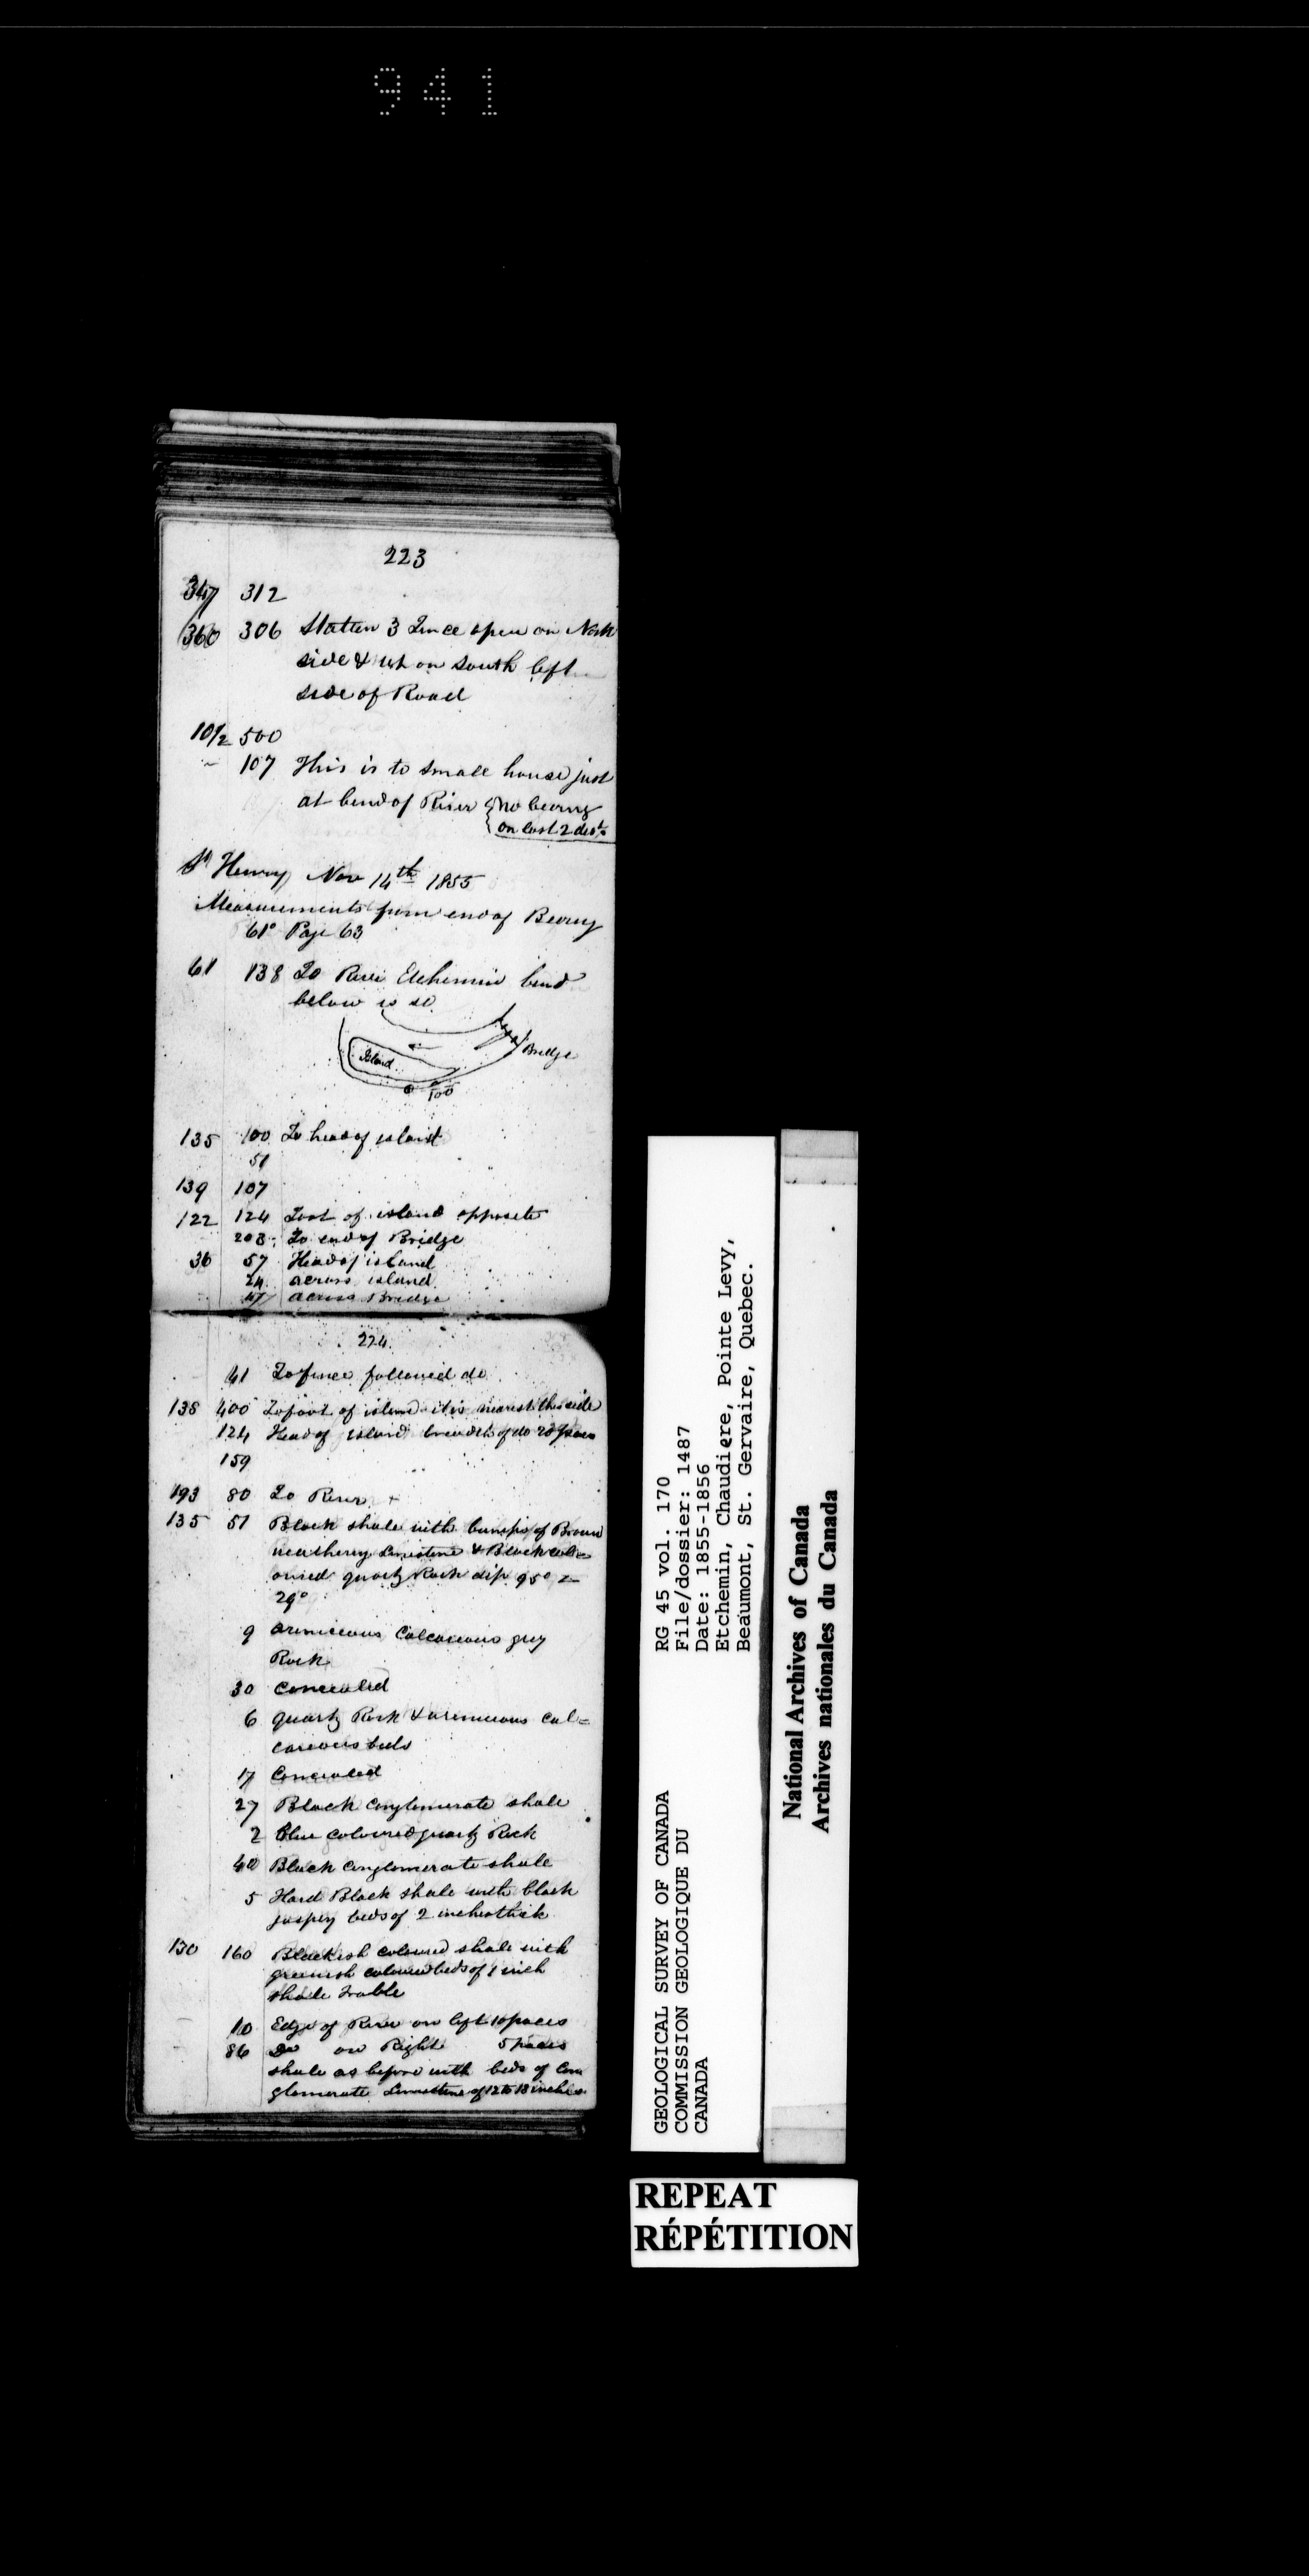 941
223
347 312
360 306 Station 3 open on North
side & on south left
side of Road
10½ 500
107 This is to small house just
at bend of River { No bearing
on last 2 dists
St Henry Nov 14th 1855
Measurements from end of Bearing
61° Page 63
61 138 To River Etchemin bend
below is so
Bridge
Island
100
135 100 To head of island
51
139 107
122 124 Foot of island opposite
203 To end of Bridge
36 57 Head of island
24 across island
47 across Bridge
224
41 To fence followed do
138 400 To foot of island it is nearest this side
124 Head of island breadth of do paces
159
193 80 To River
135 51 Black shale with bumps of Brown
weathering Limestone & Black col=
oured quartz Rock dip 95° <
29°
9 arenaceous Calcareous grey
Rock
30 Concealed
6 quartz Rock & arenaceous cal=
careous beds
17 Concealed
27 Black conglomerate shale
2 blue coloured quartz Rock
40 Black conglomerate shale
5 Hard Black shale with black
jaspery beds of 2 inches thick
130 160 Blackish coloured shale with
greenish coloured beds of 1 inch
shale
10 Edge of River on left 10 paces
86 Do on Right 5 paces
shale as before with beds of Con
glomerate Limestone of 12 to 18 inches
RG 45 vol. 170
File/dossier: 1487
Date: 1855-1856
Etchemin, Chaudiere, Pointe Levy,
Beaumont, St. Gervaire, Quebec.
GEOLOGICAL SURVEY OF CANADA
COMMISSION GEOLOGIQUE DU
CANADA
National Archives of Canada
Archives nationales du Canada
REPEAT
RÉPÉTITION